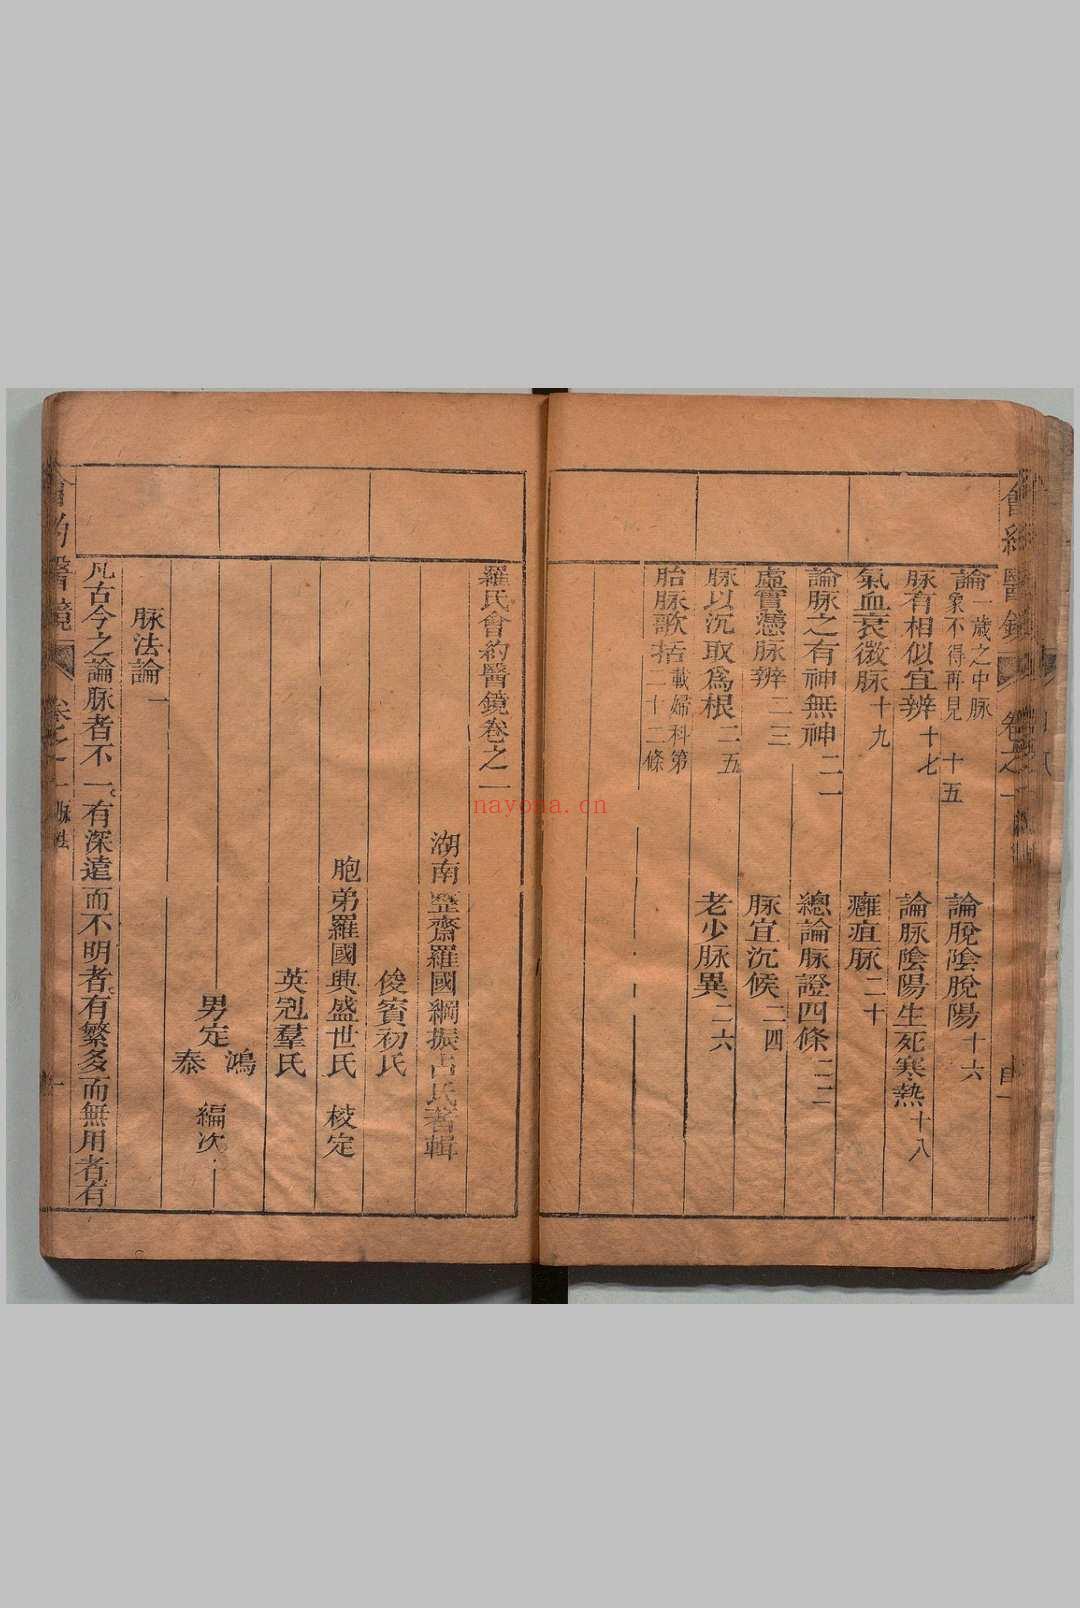 會約醫鏡 卷之一 目
論一歲之中脉象不得再見 十五 論脫陰脫陽十六
脉有相似宜辨十七 論脉陰陽生死寒熱十八
氣血衰微脉十九 癰疽脉二十
論脉之有神無神二一 總論脉證四條二二
虛實憑脉辨二三 脉宜沉候二四
脉以沉取為根二五 老少脉異二六
胎脉歌括載婦科第二十二條
羅氏會約醫鏡卷之一
湖南 㙺齋羅國綱振占氏著輯
俊賓初氏
胞弟羅國興盛世氏 校定
英冠羣氏
男定鴻泰 編次
脉法論一
凡古今之論脉者不一。有深遠而不明者。有繁多而無用者。有
會約醫鏡 卷之一 脉法 一
nayona.cn